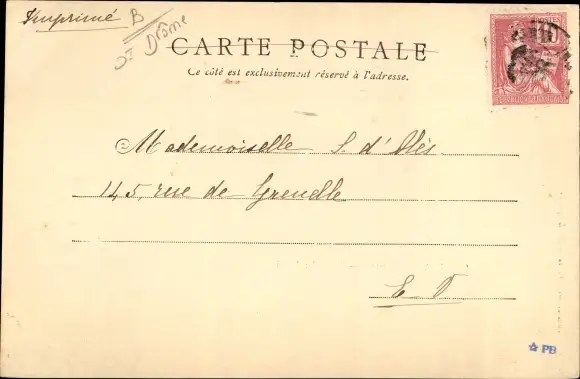 Imprimé B
Drôme
CARTE POSTALE
Ce côté est exclusivement réservé à l'adresse.
Mademoiselle S. d'Alès
145, rue de Grenelle
E V
10
POSTES
RÉPUBLIQUE FRANÇAISE
PB